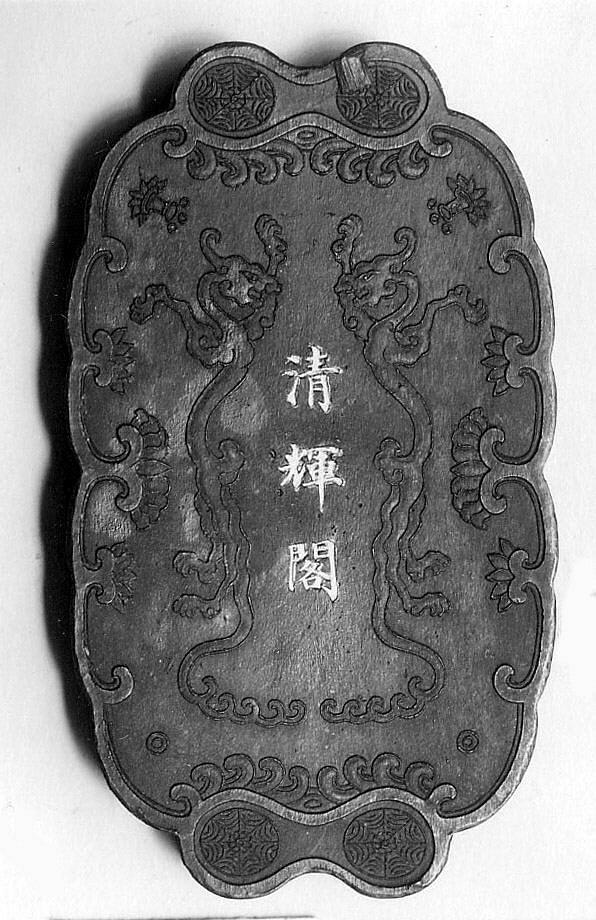 清輝閣